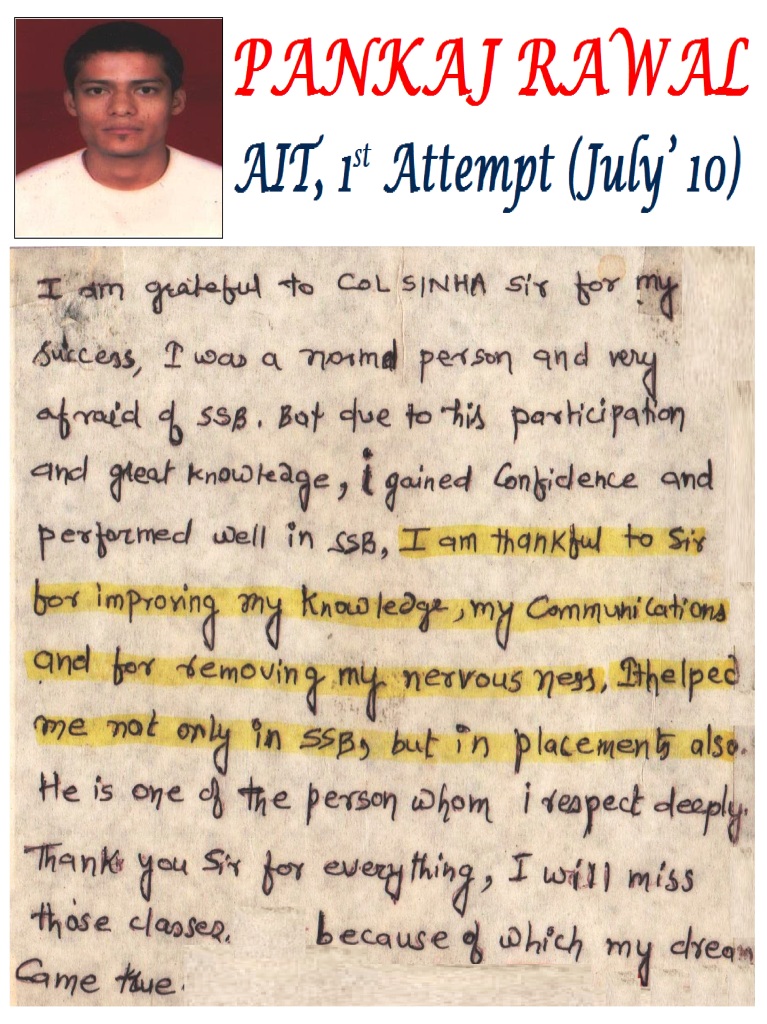 PANKAJ RAWAL
AIT, 1st Attempt (July' 10)
I am grateful to COL SINHA Sir for my
success, I was a normal person and very
afraid of SSB. But due to his participation
and great knowledge, i gained Confidence and
performed well in SSB, I am thankful to Sir
for improving my knowledge, my Communications
and for removing my nervous ness, It helped
me not only in SSB, but in placements also.
He is one of the person whom i respect deeply.
Thank you Sir for everything, I will miss
those classes. because of which my dream
Came true.